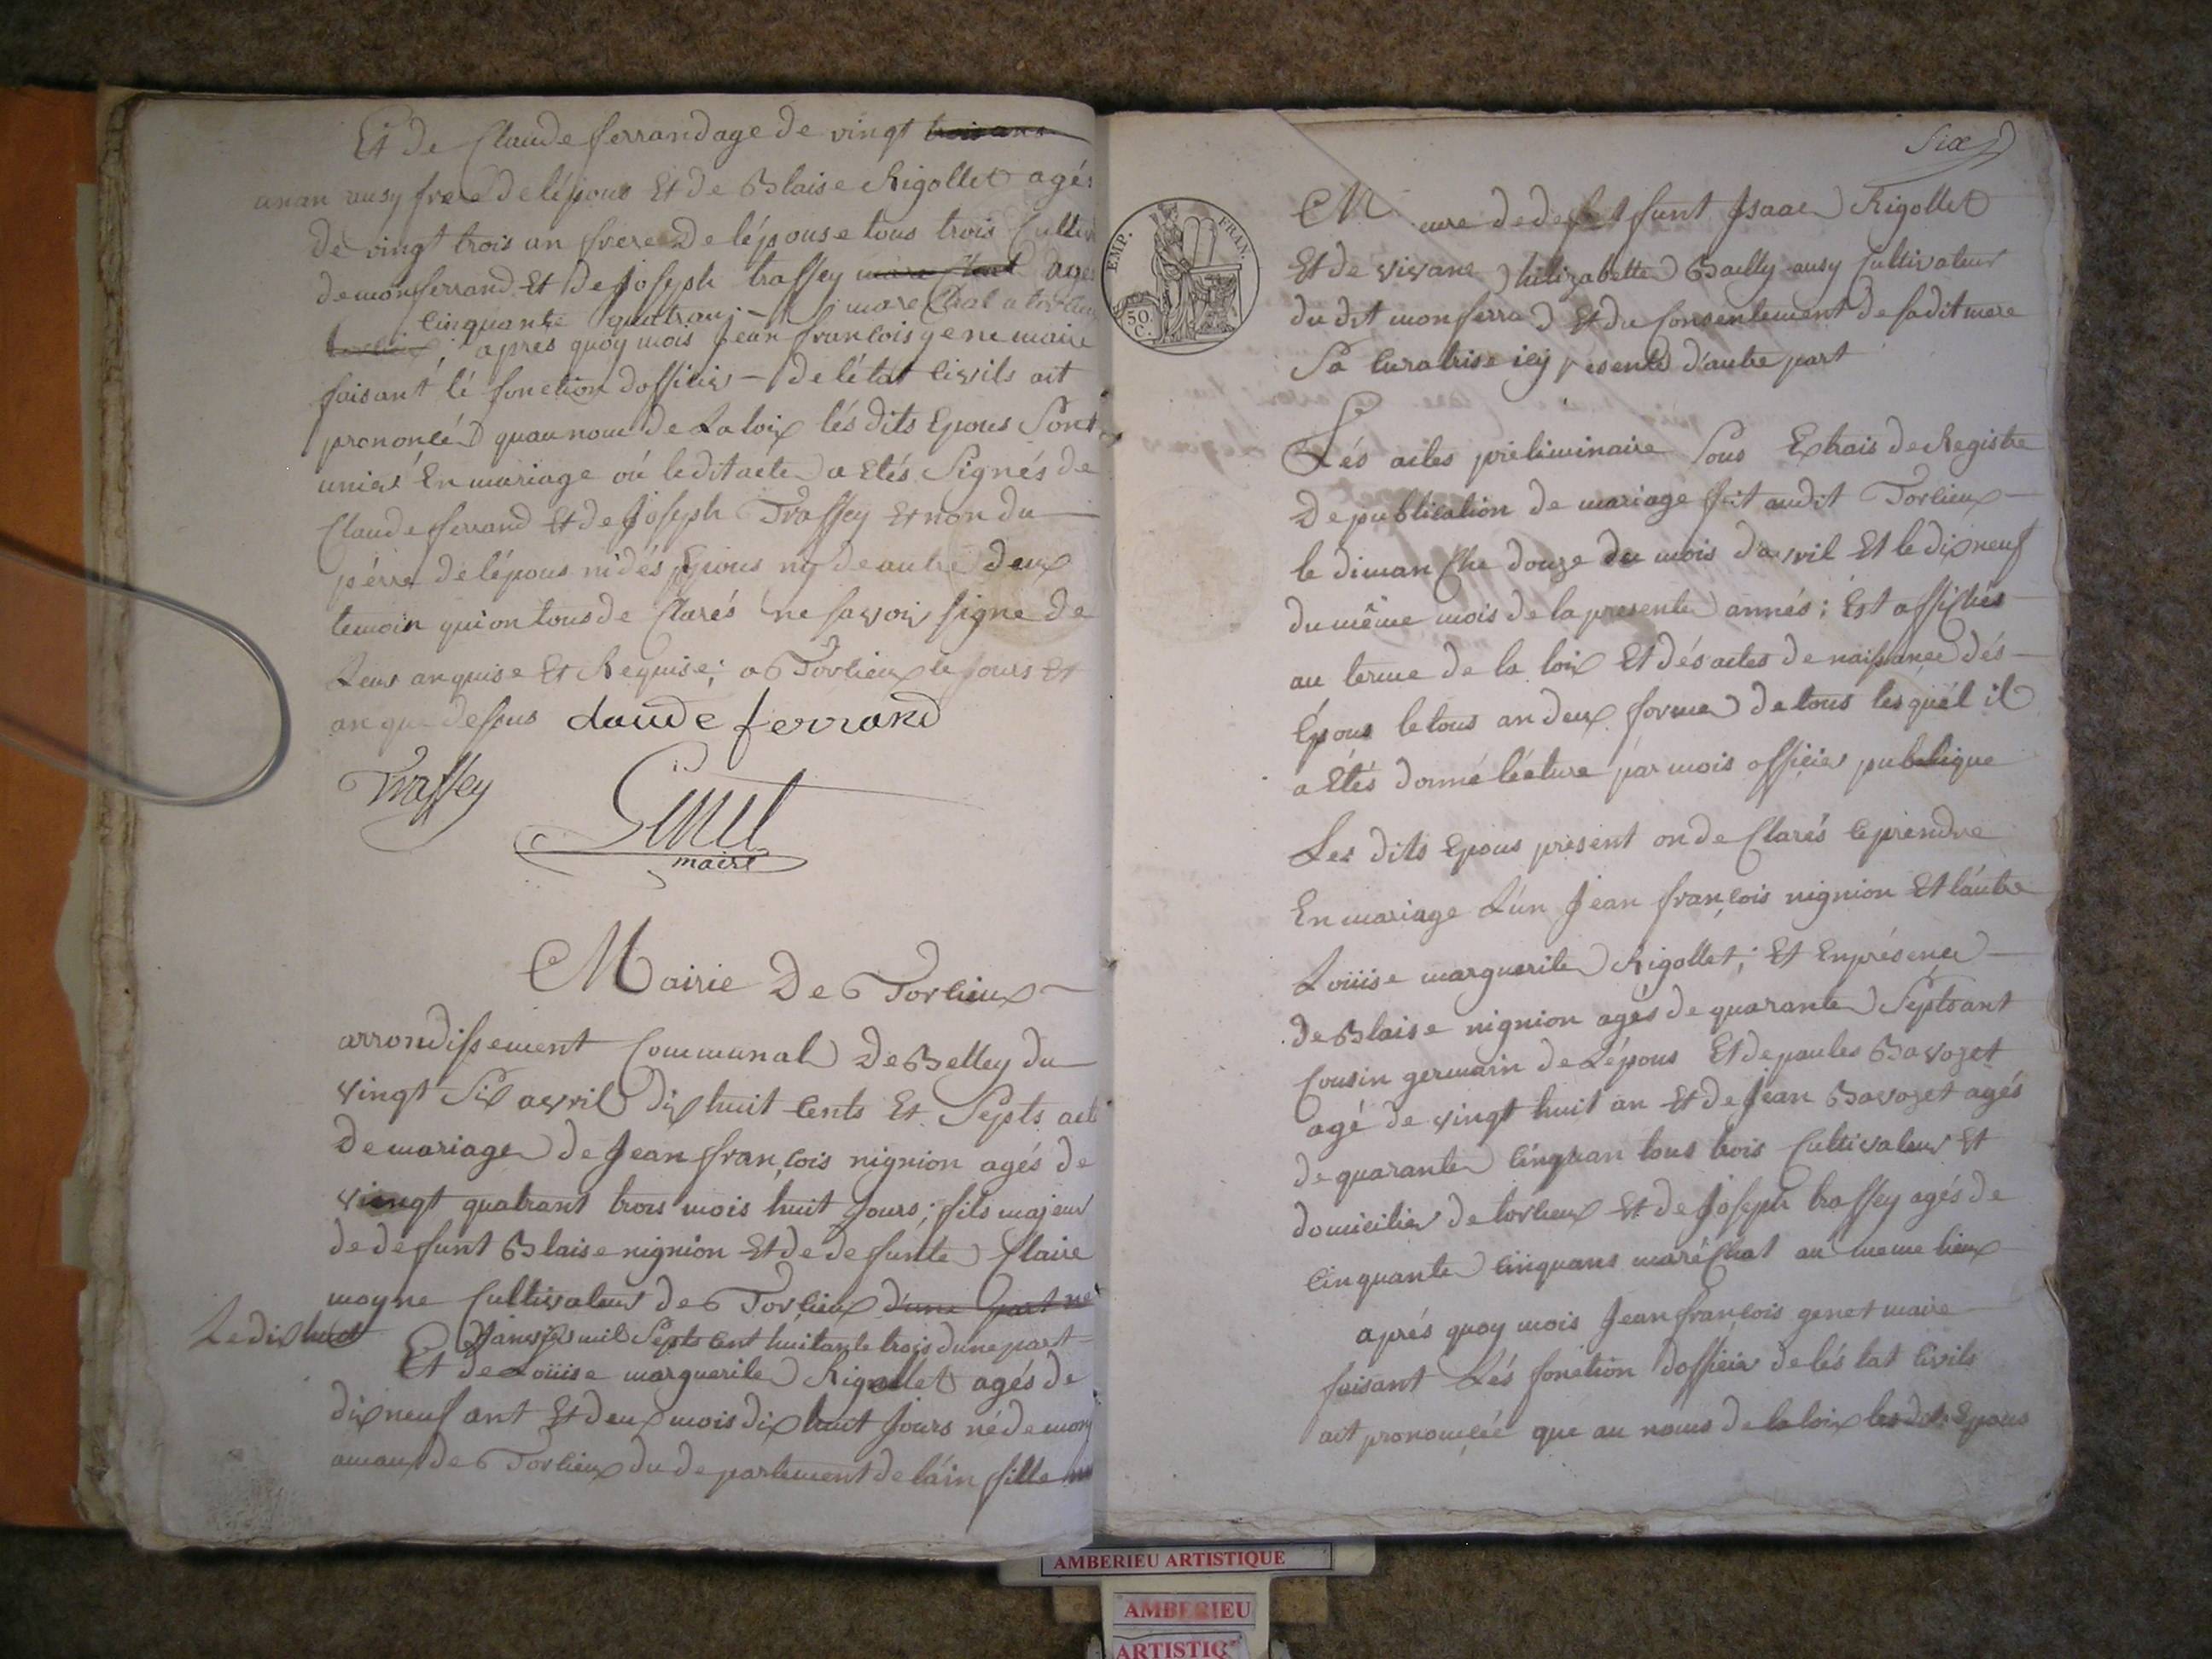 Et de Claude ferrand age de vingt trois ans
unan ausy frere de lépous Et de Blaise Rigollet agés
de vingt trois an frere De lépouse tous trois Cultiv
de monferrand Et De Joseph traffey agé
cinquante quatrans marechal a torlieu
apres quoy mois Jean francois genemaire
faisant lé fonction dofficier de létat civils ait
prononcéd quau nom de La loix lés dits Epous Sont
unies En mariage oú ledit acte a Etés Signés de
Claude ferrand Et de Joseph Traffey Et non du
pérre de lépous ni dés Epous ny de autre deux
temoin qui on tous de Clarés ne savoir signe de
Leur anquise Et Requise; a Torlieux le jours Et
an que dessus claude ferrand
Traffey
Genet
maire
Mairie De Torlieux
arrondissement Communal De Belley du
vingt Six avril dix huit Cents Et Septs acte
De mariage de Jean francois nignion agés de
viengt quatrant trois mois huit Jours; fils majeur
de defunt Blaise nignion Et de defunte Claire
moyne Cultivateur de Torlieux d'une part né
Le dix huit Janvier mil Septs Cent huitante trois dune part
Et de Louiise marguerite Rigollet agés de
dix neuf ant Et deux mois dix huit Jours né de mon
aman de Torlieux du departement de láin fille
Six
EMP. FRAN.
50 C.
M ure de defunt Isaac Rigollet
Et de vivane hélizabette Bailly ausy Cultivateur
du dit monferrand Et du Consentement de sadit mere
Sa Curatrise icy presente d'autre part
Lés actes préliminaire Sous Extrais de Registre
De publication de mariage fait audit Torlieux
le dimanche douze du mois davril Et le dixneuf
du même mois de la presente annés; Est affichés
au terme de la loix Et dés actes de naissance dés
Epous le tous an deux forme de tous lesquél il
a Etés donné lécture par mois officier publique
Les dits Epous présent on de Clarés ceprendre
En mariage L'un Jean francois nignion Et láutre
Louiise marguerite Rigollet; Et En présence
de Blaise nignion agés de quarante Septs ant
Cousin germain de Lépous Et de paules Bavozet
agé de vingt huit an Et de Jean Bavozet agés
de quarante Cinquan tous trois Cultivateur Et
domicilier de torlieux Et de Joseph traffey agés de
Cinquante Cinquans maréchal au meme lieux
aprés quoy mois Jean francois genet maire
faisant Lés fonction dofficier de lés tat Civils
ait prononcéé que au noms de la loix les dits Epous
AMBERIEU ARTISTIQUE
AMBERIEU
ARTISTIQ